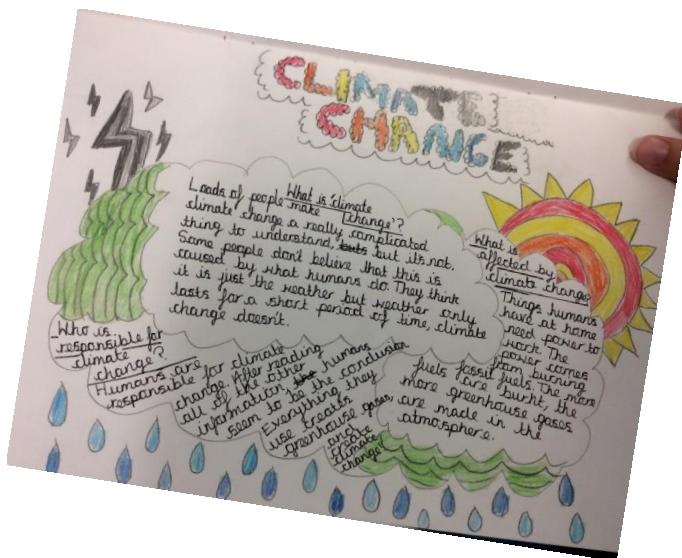 CLIMATE
CHANGE
What is 'climate
change'?
Loads of people make
climate change a really complicated
thing to understand, buts but its not.
Some people don't believe that this is
caused by what humans do. They think
it is just the weather but weather only
lasts for a short period of time, climate
change doesn't.
What is
affected by
climate change?
Things humans
have at home
need power to
work. The
power comes
from burning
fuels fossil fuels. The more
fuels are burnt, the
more greenhouse gases
are made in the
atmosphere.
Who is
responsible for
climate
change?
Humans are
responsible for climate
change. After reading
all of the other
information humans
seem to be the conclusion
Everything they
use creates
greenhouse gases
and
create
climate
change!